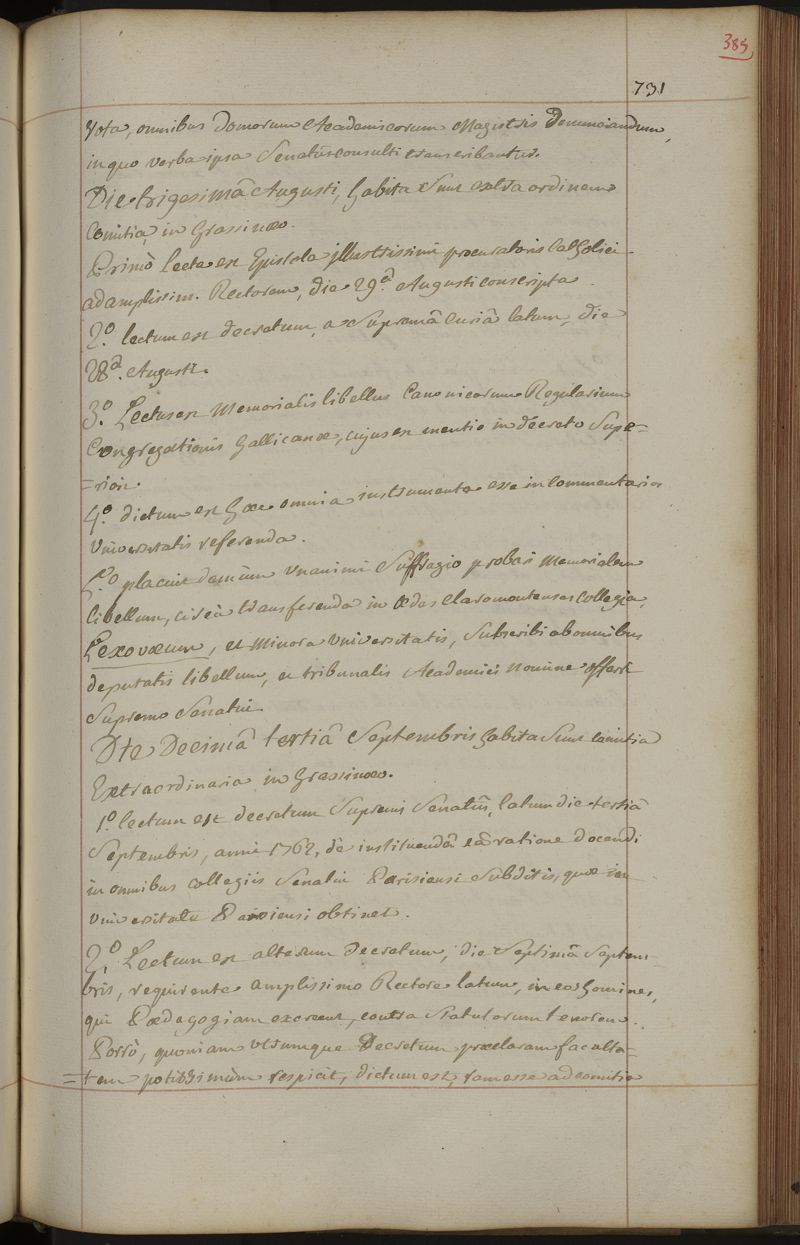 385
731
Nota, omnibus Domorum Academicarum Magistris Denunciandum,
in quo verba ipsa Senatûsconsulti transcribantur.
Die trigesimâ Augusti, habita sunt extra ordinem
Comitia, in Grassinæo.
Primò lecta est Epistola illustrissimi procuratoris Catholici
ad amplissim. Rectorem, die 29.â Augusti conscripta.
2.º lectum est decretum, a Supremâ Curiâ latum, die
28â. Augusti.
3.º Lectus est Memorialis libellus Canonicorum Regularium
Congregationis Gallicanæ, cujus est mentio in decreto Supe=
=riori.
4.º dictum est hæc omnia instrumenta esse in Commentarios
Universitatis referenda.
5.º placuit demùm unanimi Suffragio probari Memorialem
libellum, circà transferenda in ædes Claromontenses Collegia,
Lexovæum, et Minora Universitatis, Subscribi ab omnibus
deputatis libellum, et tribunalis Academici nomine offerri
Supremo Senatui.
Die Decimâ tertiâ Septembris habita Sunt comitia
Extraordinaria in Grassinæo.
1.º lectum est decretum Supremi Senatûs, latum die tertiâ
Septembris, anni 1762, de instituendâ eâ ratione docendi
in omnibus collegiis Senatui Parisiensi Subditis, quæ in
Universitate Parisiensi obtinet.
2.º Lectum est alterum Decretum, die Septimâ Septem-
bris, requirente amplissimo Rectore latum, in eos homines,
qui Pædagogiam exercent, contra Statutorum tenorem.
Porrò, quoniam utrumque Decretum præclaram faculta=
=tem potissimùm respicit, dictum est, rem esse ad comitia